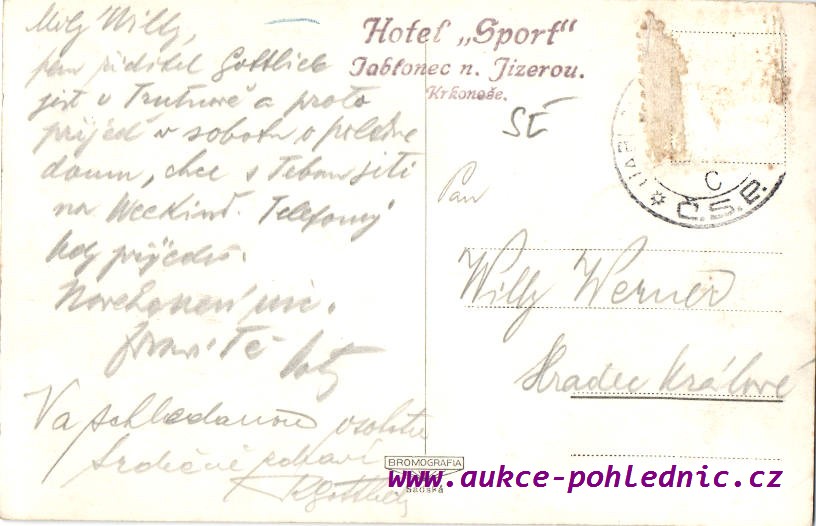 Milý Willy,
pan ředitel Gottlieb
jest v Trutnově a proto
přijeď v sobotu o poledne
domu, chce s Tebou jíti
na Weekend. Telefonuj
kdy přijedeš.
nic.
Zdraví Tě
Na shledanou v sobotu
Srdečně zdraví
KGottlieb
Hotel „Sport“
Jablonec n. Jizerou.
Krkonoše.
SÉ
C
Č.S.P.
Pan
Willy Werner
Hradec Králové
BROMOGRAFIA
Sadská
www.aukce-pohlednic.cz